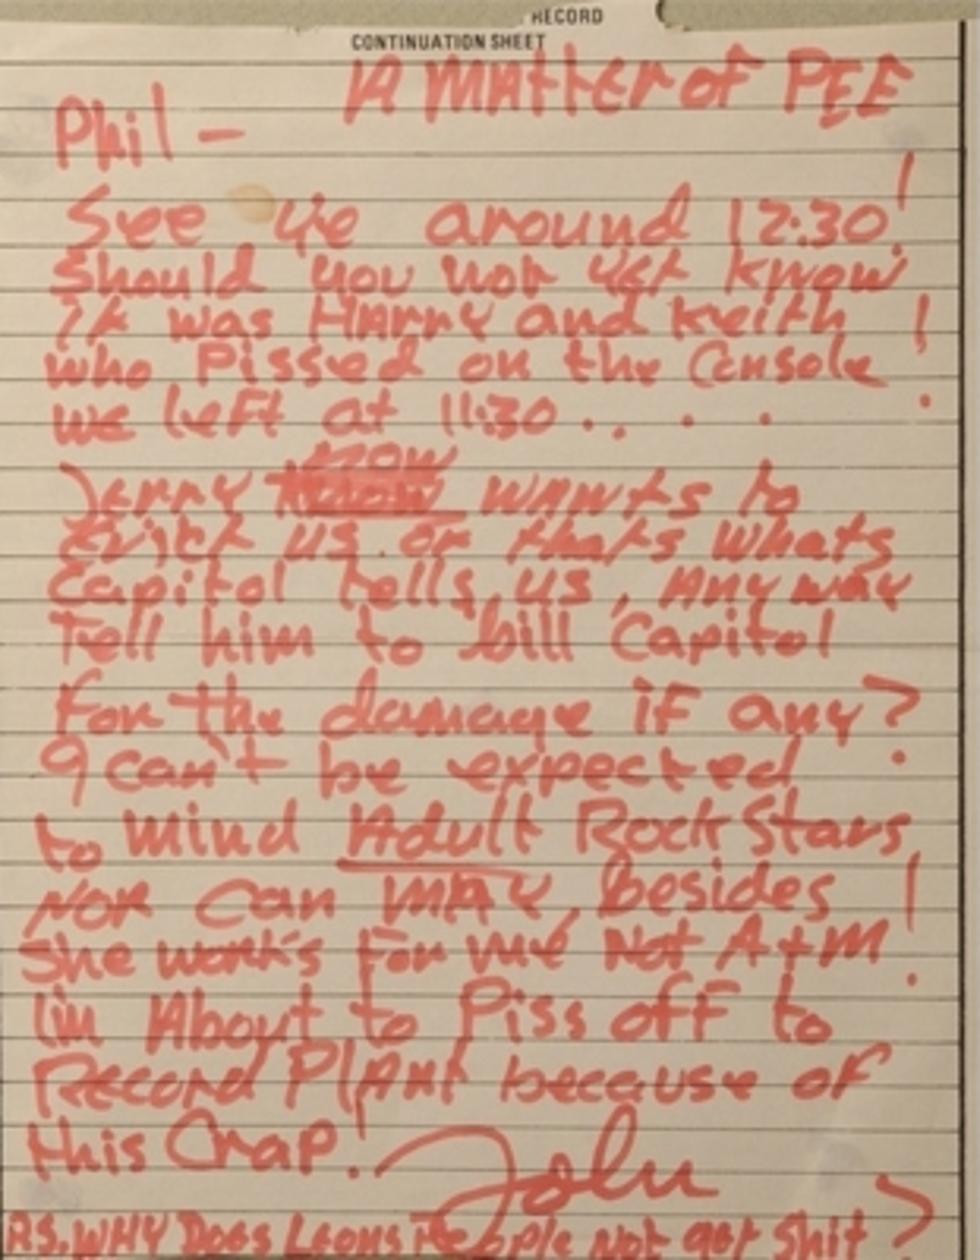 RECORD
CONTINUATION SHEET
A MAtter of PEE
Phil -
See ye around 12:30!
Should you not yet know
it was HArry and keith
who Pissed on the Console!
we left at 11:30 . . . . .
Jerry now wants to
Evict us. or thats whats
Capitol tells us. Anyway
Tell him to bill Capitol
For the damage if any?
I can't be expected
to mind Adult Rock Stars
Nor can MAY, besides
She works For me Not A+M!
I'm About to Piss off to
Record PlAnt because of
this Crap!
John
P.S. WHY Does Leons People Not get Shit?